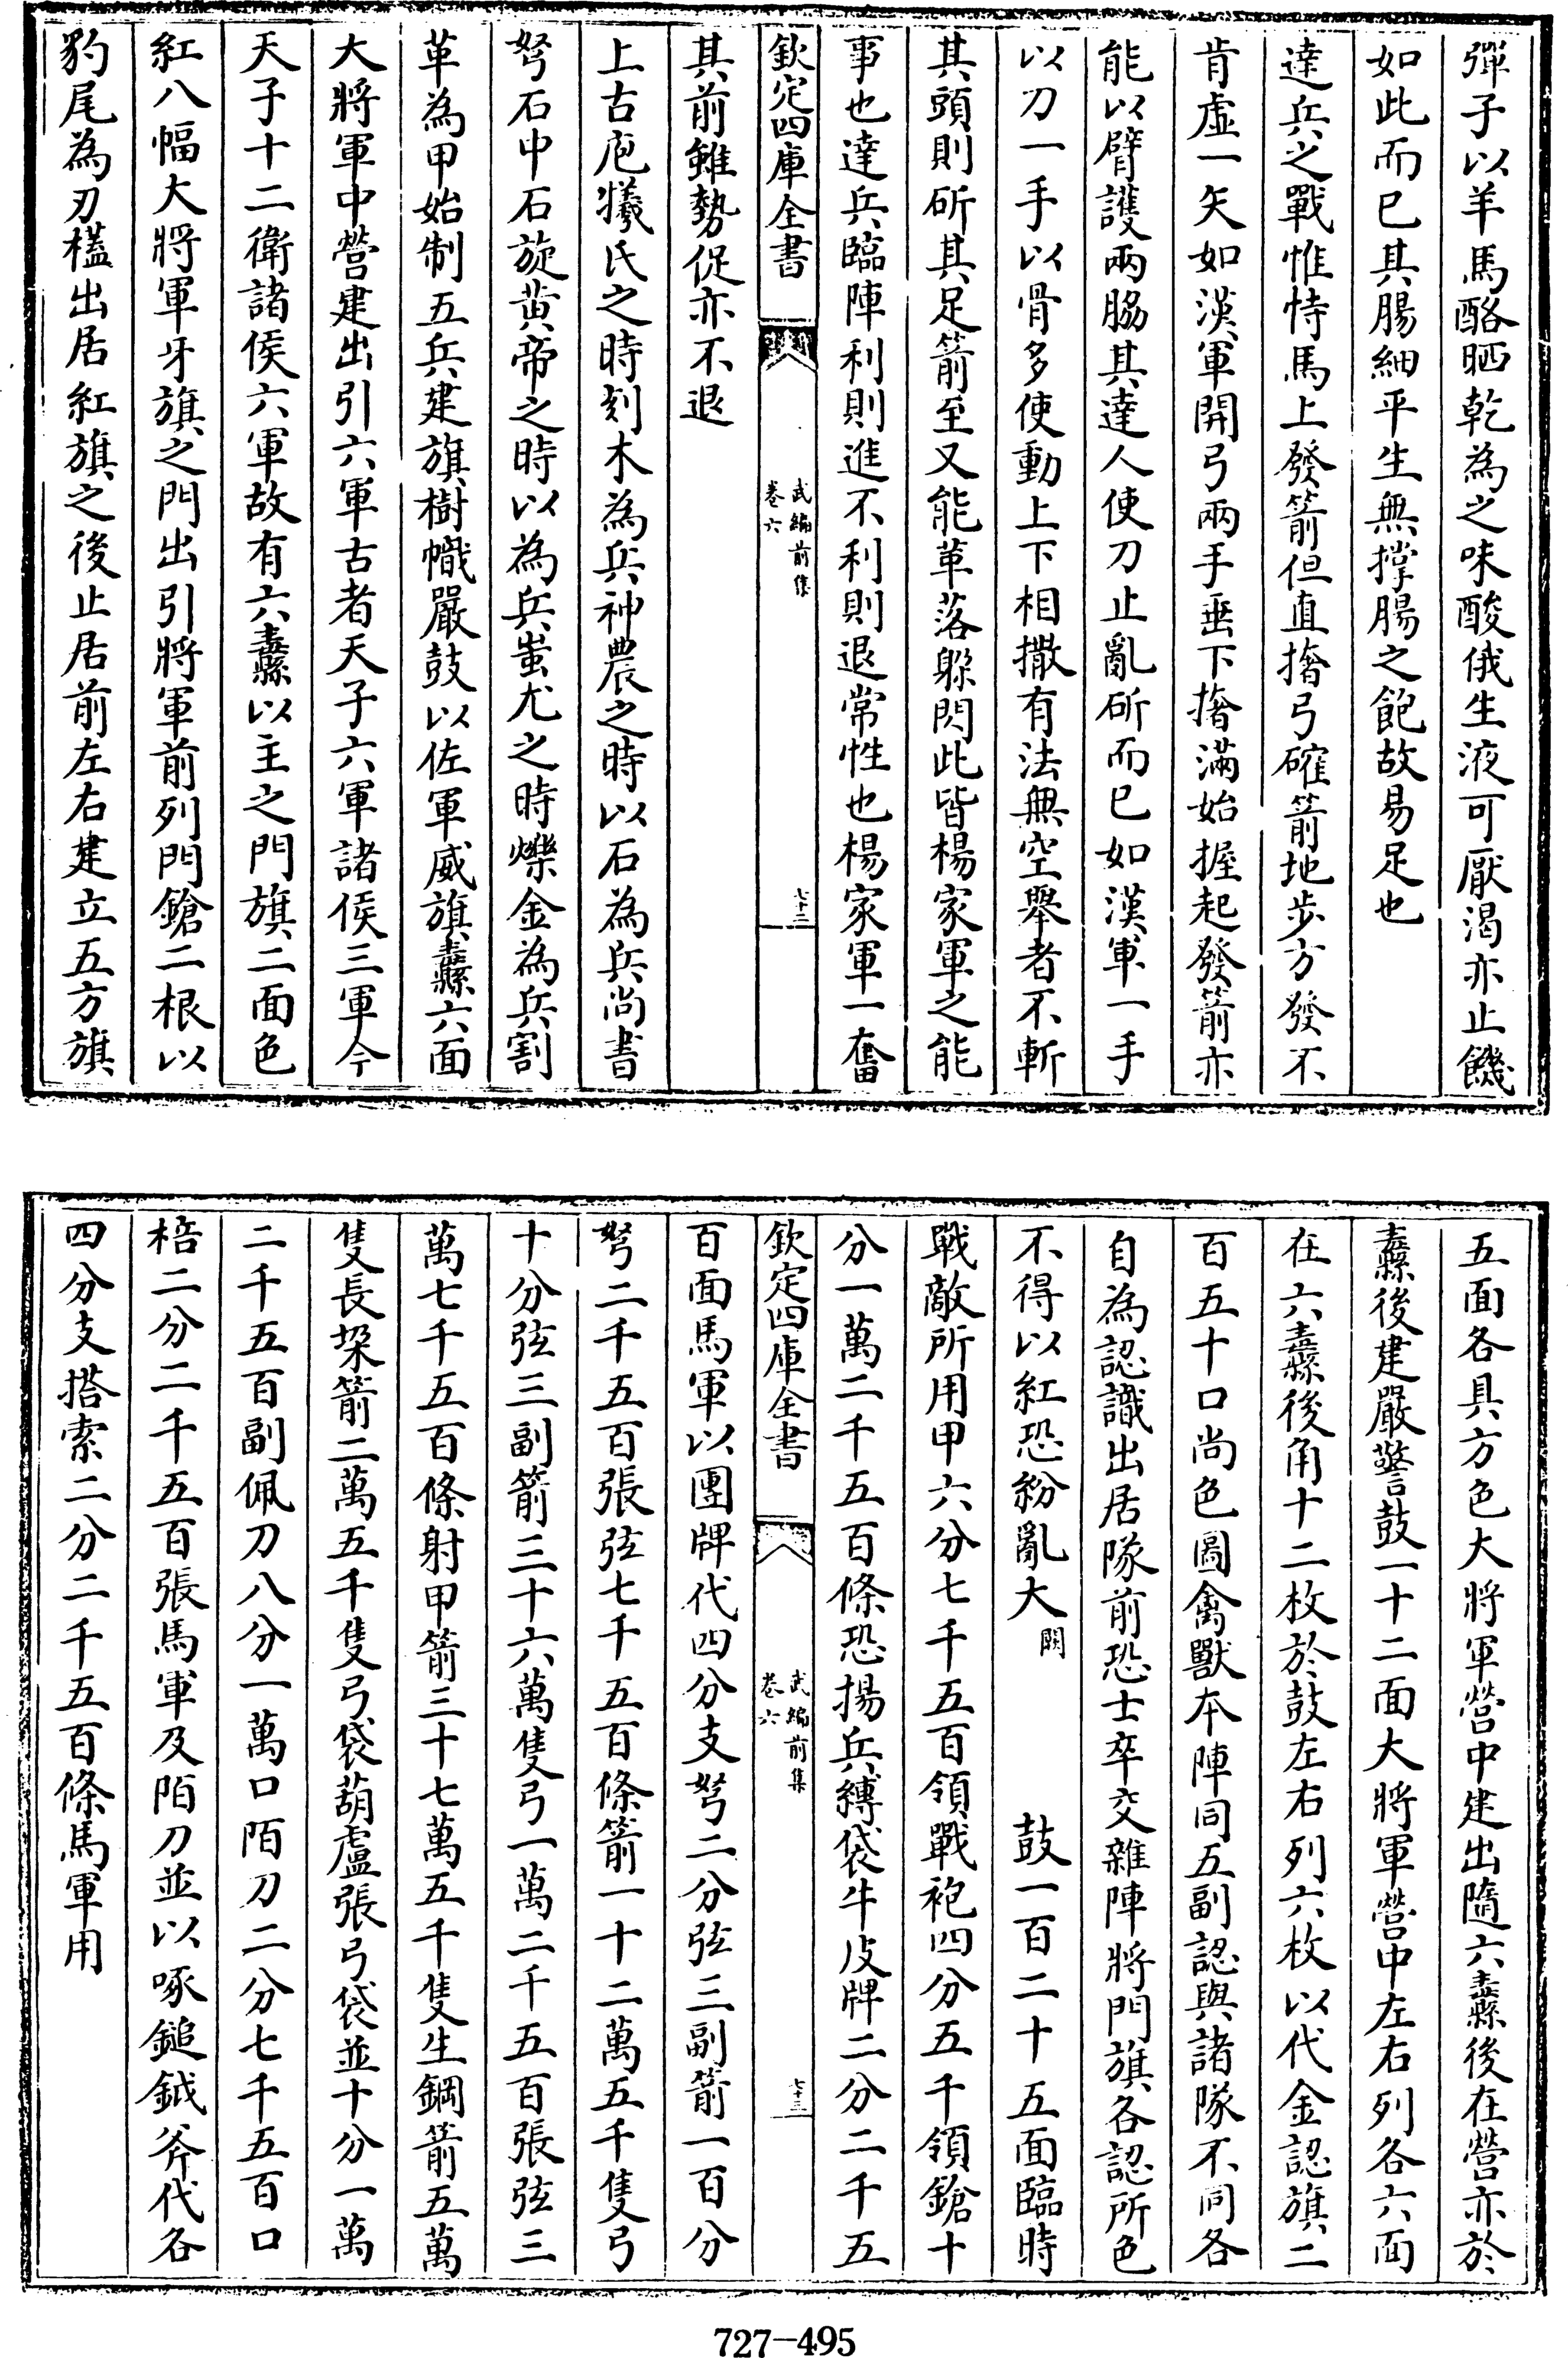 彈子以羊馬酪晒乾為之味酸俄生液可厭渴亦止饑
如此而已其腸細平生無撑腸之飽故易足也
達兵之戰惟恃馬上發箭但直搭弓確箭地步方發不
肯虛一矢如漢軍開弓兩手垂下搭滿始握起發箭亦
能以臂護兩脇其達人使刀止亂斫而已如漢軍一手
以刀一手以骨多使動上下相撒有法無空舉者不斬
其頭則斫其足箭至又能革落躲閃此皆楊家軍之能
事也達兵臨陣利則進不利則退常性也楊家軍一奮
欽定四庫全書
武編前集
卷六
七十二
其前雖勢促亦不退
上古庖犧氏之時刻木為兵神農之時以石為兵尚書
弩石中石旋黄帝之時以為兵蚩尤之時爍金為兵割
革為甲始制五兵建旗樹幟嚴鼓以佐軍威旗纛六面
大將軍中營建出引六軍古者天子六軍諸侯三軍今
天子十二衛諸侯六軍故有六纛以主之門旗二面色
紅八幅大將軍牙旗之門出引將軍前列門鎗二根以
豹尾為刃榼出居紅旗之後止居前左右建立五方旗
五面各具方色大將軍營中建出隨六纛後在營亦於
纛後建嚴警鼓一十二面大將軍營中左右列各六面
在六纛後角十二枚於鼓左右列六枚以代金認旗二
百五十口尚色圖禽獸本陣同五副認與諸隊不同各
自為認識出居隊前恐士卒交雜陣將門旗各認所色
不得以紅恐紛亂大闕鼓一百二十五面臨時
戰敵所用甲六分七千五百領戰袍四分五千領鎗十
分一萬二千五百條恐揚兵縛袋牛皮牌二分二千五
欽定四庫全書
武編前集
卷六
七十三
百面馬軍以團牌代四分支弩二分弦三副箭一百分
弩二千五百張弦七千五百條箭一十二萬五千隻弓
十分弦三副箭三十六萬隻弓一萬二千五百張弦三
萬七千五百條射甲箭三十七萬五千隻生鋼箭五萬
隻長垜箭二萬五千隻弓袋葫盧張弓袋並十分一萬
二千五百副佩刀八分一萬口陌刀二分七千五百口
棓二分二千五百張馬軍及陌刀並以啄鎚鉞斧代各
四分支搭索二分二千五百條馬軍用
727-495